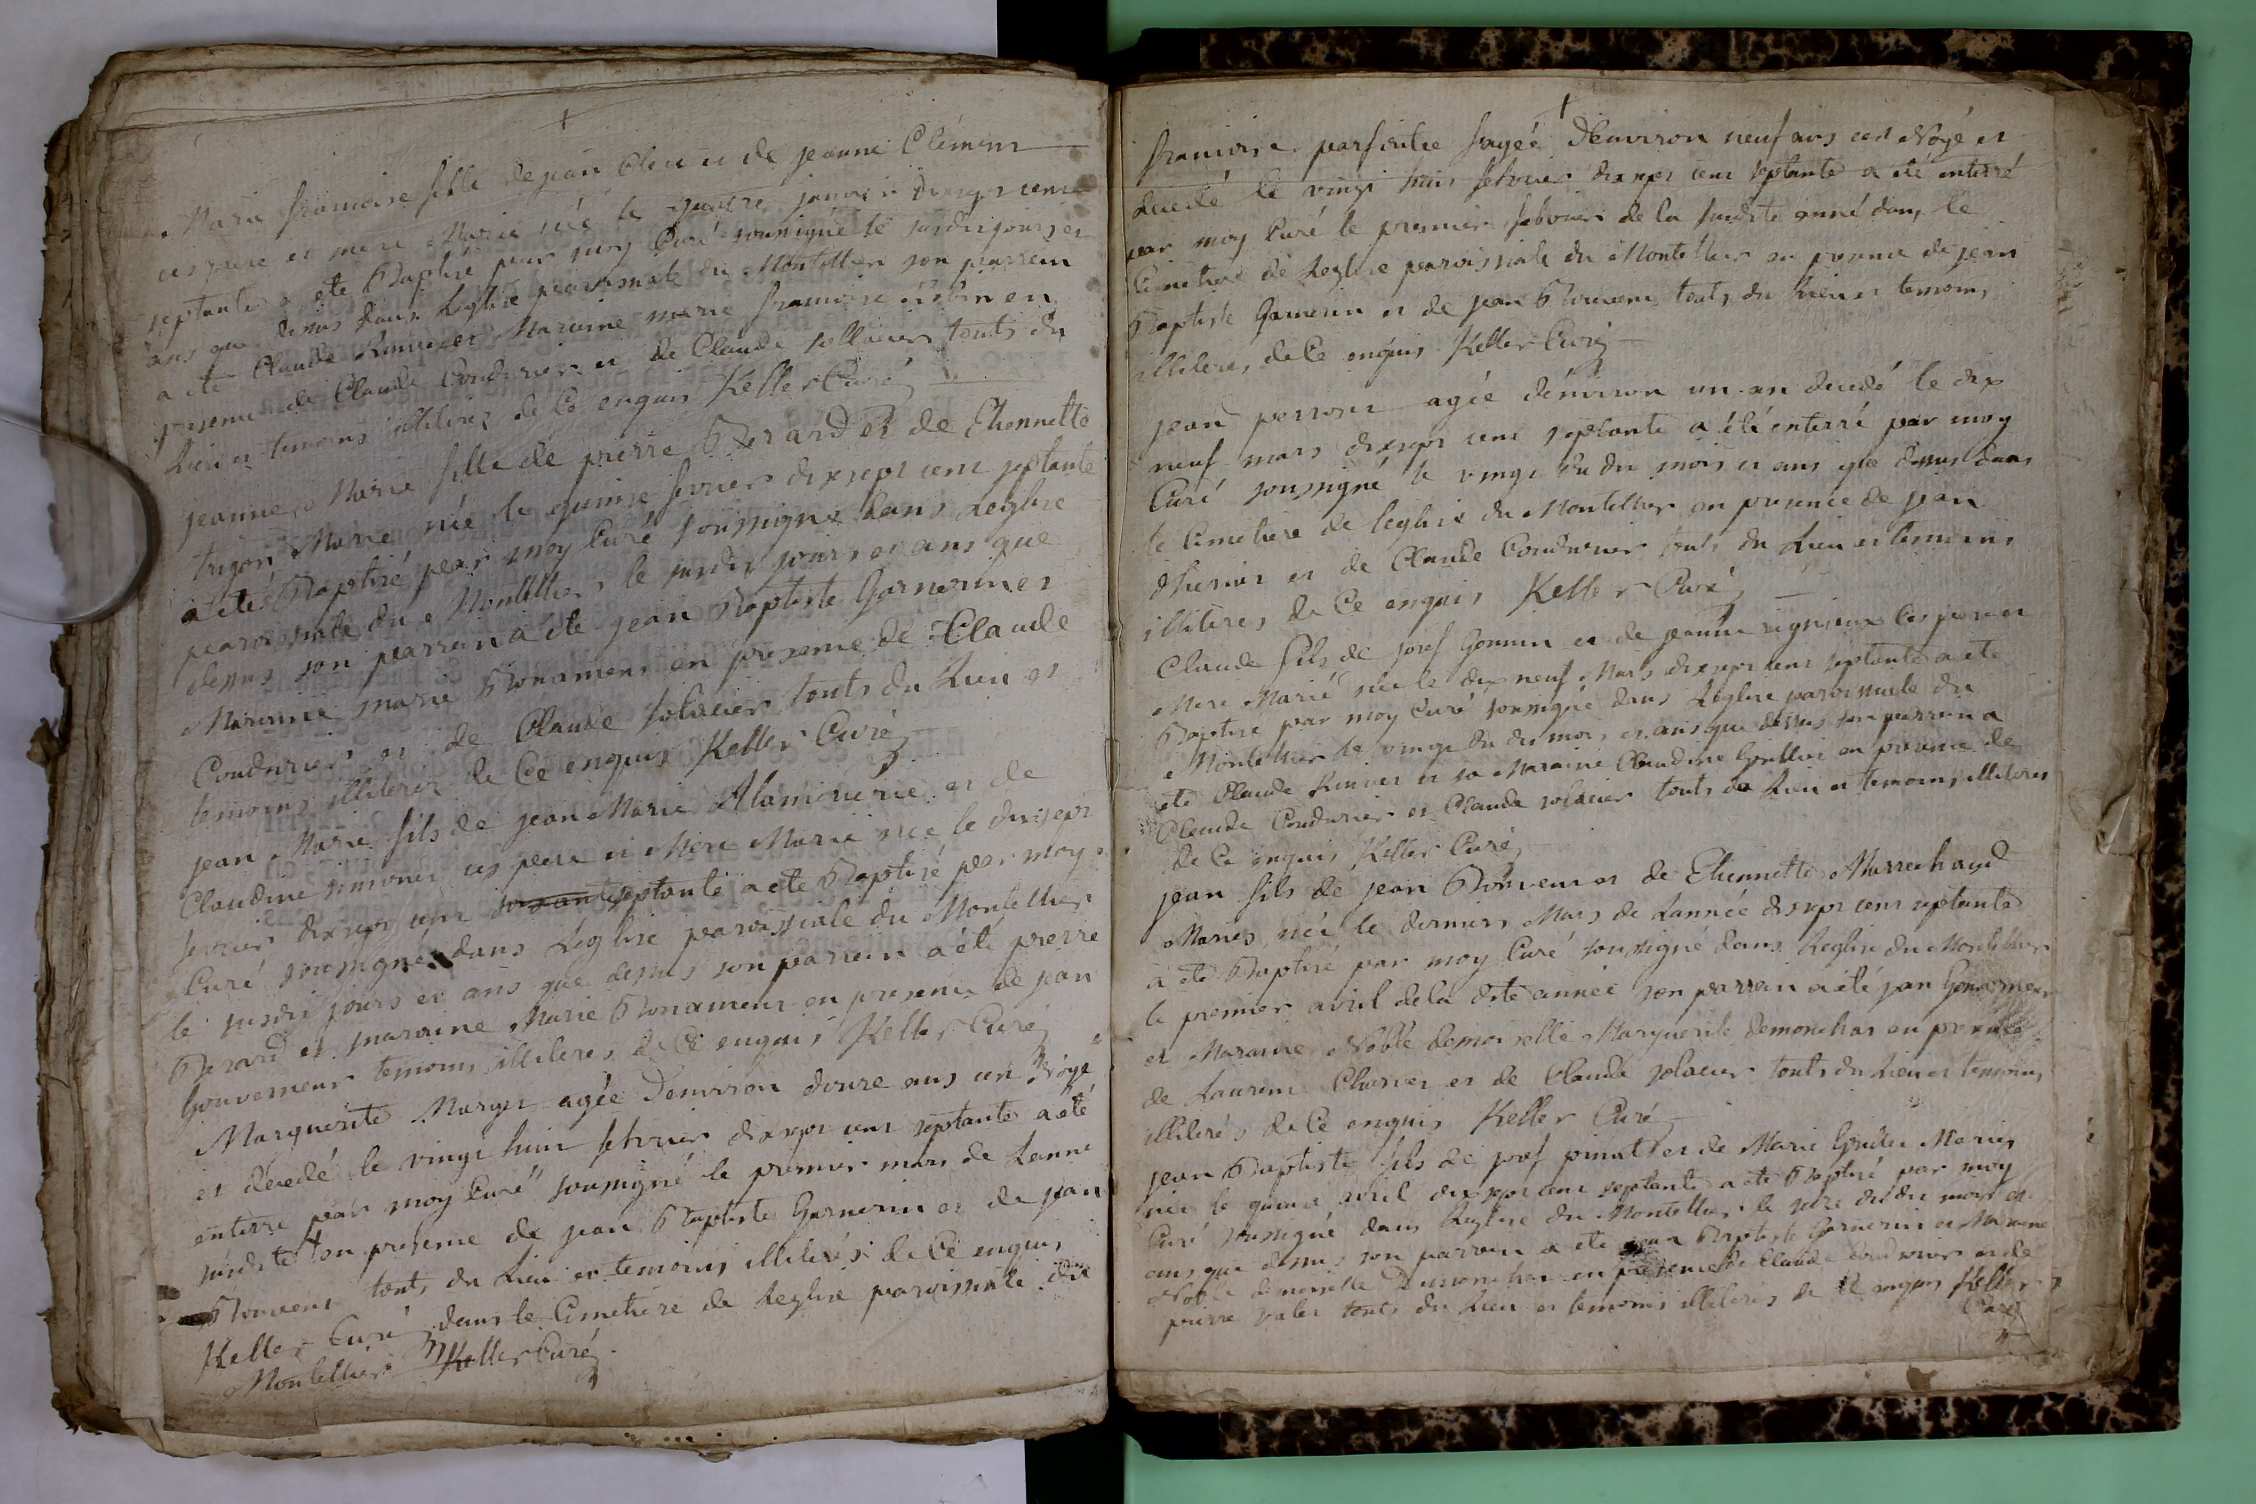 Marie francoise fille de jean et de jeanne Clément
ces pere et mere Marié née le quatre janvier dixsept cent
septante a ete Baptisé par moy Curé soussigné le susdit jours et
ans que dessus dans Leglise paroissiale du Montellier son parrein
a ete Claude et Maraine marie francoise en
presence de Claude Coudurier et de Claude sollacier touts du
Lieu et temoins illiteres de Ce enquis Keller Curé
jeanne Marie fille de pierre Berard et de Ethennette
trigon Marié née le quinse fevrier dixsept cent septante
a eté Baptisé par moy Curé soussigné dans Leglise
paroissiale du Montellier le susdit jours et ans que
dessus son parrein a ete jean Baptiste Garnerin et
Maraine marie Bonamour en presence de Claude
Coudurier et de Claude solacier touts du Lieu et
temoins illiteres de Ce enquis Keller Curé
jean Marie fils de jean Marie Alamercerie et de
Claudine simonet ces pere et Mere Marié née le dixsept
fevrier dixsept cent septante a ete Baptisé par moy
Curé soussigné dans Leglise paroissiale du Montellier
le susdit jours et ans que dessus son parrein a été pierre
Berard et maraine Marie Bonamour en presence de jean
Gouverneur temoins illiteres de Ce enquis Keller Curé
Marguerite agée Denviron douze ans est Noyé
et décedé le vingt huit febvrier dixsept cent septante a été
enterré par moy Curé soussigné le premier mars de Lanné
susdite en presence de jean Baptiste Garnerin et de jean
Bouvent touts du Lieu et temoins illiterés de Ce enquis
Keller Curé dans le Cimetiere de Leglise paroissiale du
Montellier Keller Curé
francoise agée Denviron neuf ans est Noyé et
décedé le vingt huit febvrier dixsept cent septante a été enterré
par moy Curé le premier febvrier de la susdite année dans le
Cimetiere de Leglise paroissiale du Montellier en presence de jean
Baptiste Garnerin et de jean Bouvent touts du Lieu et temoins
illiteres de Ce enquis Keller Curé
jean perroset agée dénviron un an decedé le dix
neuf mars dixsept cent septante a été enterré par moy
Curé soussigné le vingt du du mois et ans que dessus dans
le Cimetiere de leglise du Montellier en presence de jean
et de Claude Coudurier touts du Lieu et temoins
illiteres de Ce enquis Keller Curé
Claude fils de josef Gonnin et de jeanne Ces pere et
Mere Marié née le dix neuf Mars dixsept cent septante a ete
Baptisé par moy Curé soussigné dans Leglise paroissiale du
Montellier le vingt du du mois et ans que dessus son parrein a
ete Claude et sa Maraine Claudine en presence de
Claude Coudurier et Claude solacier touts du Lieu et temoins illiteres
de Ce enquis Keller Curé
jean fils de jean Bouvent et de Etiennette Marrechaud
Mariés née le dernier Mars de Lannée dixsept cent septante
a ete Baptisé par moy Curé soussigné dans Leglise du Montellier
le premier avril de la dite année son parrain a été jean Gouverneur
et Maraine Noble demoiselle Marguerite demonchas en presence
de Laurent et de Claude solacier touts du Lieu et temoins
illiterés de Ce enquis Keller Curé
jean Baptiste fils de josef pinat et de Marie Mariés
née le quinse avril dixsept cent septante a ete Baptisé par moy
Curé soussigné dans Leglise du Montellier le seize du du mois et
ans que dessus son parrain a ete jean Baptiste Garnerin et Maraine
Noble demoiselle en presence de Claude Coudurier et de
pierre touts du Lieu et temoins illiteres de Ce enquis Keller
Curé